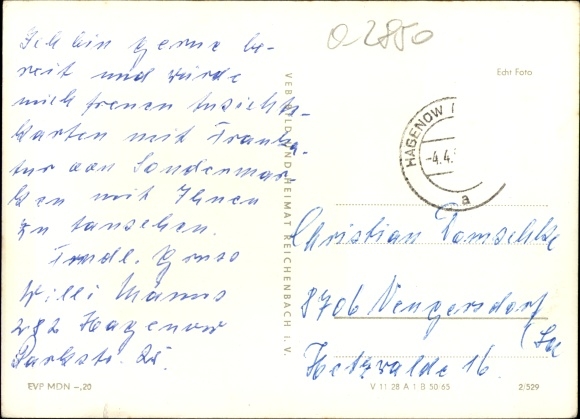 Ich bin gerne be-
reit und würde
mich freuen Ansichts-
karten mit Franka-
tur von Sondermar-
ken mit Ihnen
zu tauschen.
Frndl. Gruss
Willi Manns
282 Hagenow
Parkstr. 25.
EVP MDN -,20
VEB BILD UND HEIMAT REICHENBACH I. V.
02850
Echt Foto
HAGENOW
-4.4.
a
Christian
8706 Neugersdorf
(Sa
16
V 11 28 A 1 B 50 65
2/529